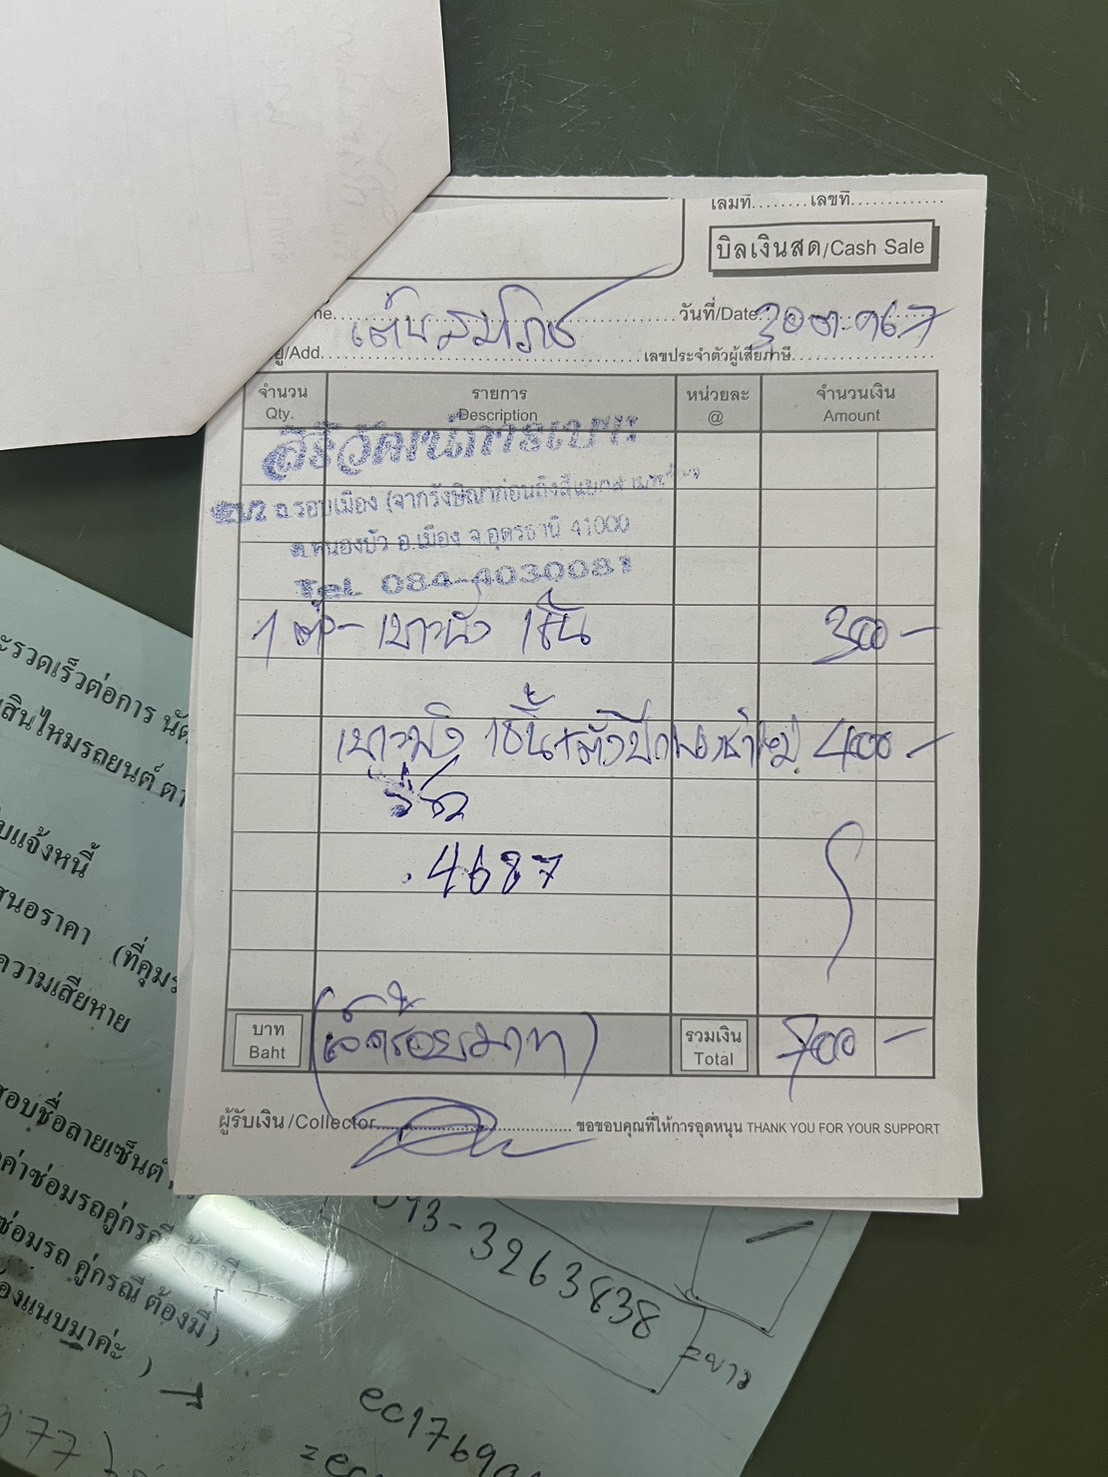 เล่มที่........เลขที่............
บิลเงินสด/Cash Sale
วันที่/Date
/Add. เลขประจำตัวผู้เสียภาษี
จำนวน รายการ หน่วยละ จำนวนเงิน
Qty. Description @ Amount
ถ.รอบเมือง (จากรังษิณาก่อนถึงสี่แยก
ต.หนองบัว อ.เมือง จ.อุดรธานี 41000
Tel. 084-4030081
1 เบาะนั่ง 1ชิ้น 300-
เบาะพิง 1ชิ้น+ 400-
4687
บาท (เจ็ดร้อยบาท) รวมเงิน 700-
Baht Total
ผู้รับเงิน/Collector ขอขอบคุณที่ให้การอุดหนุน THANK YOU FOR YOUR SUPPORT
ะรวดเร็วต่อการ
สินไหมรถยนต์
บแจ้งหนี้
สนอราคา
ความเสียหาย
สอบชื่อลายเซ็นต์
ค่าซ่อมรถคู่กรณี ต้องมี
ซ่อมรถ คู่กรณี ต้องมี)
องแนบมาค่ะ )
093-3263838
=ขาว
ec1769
=ec